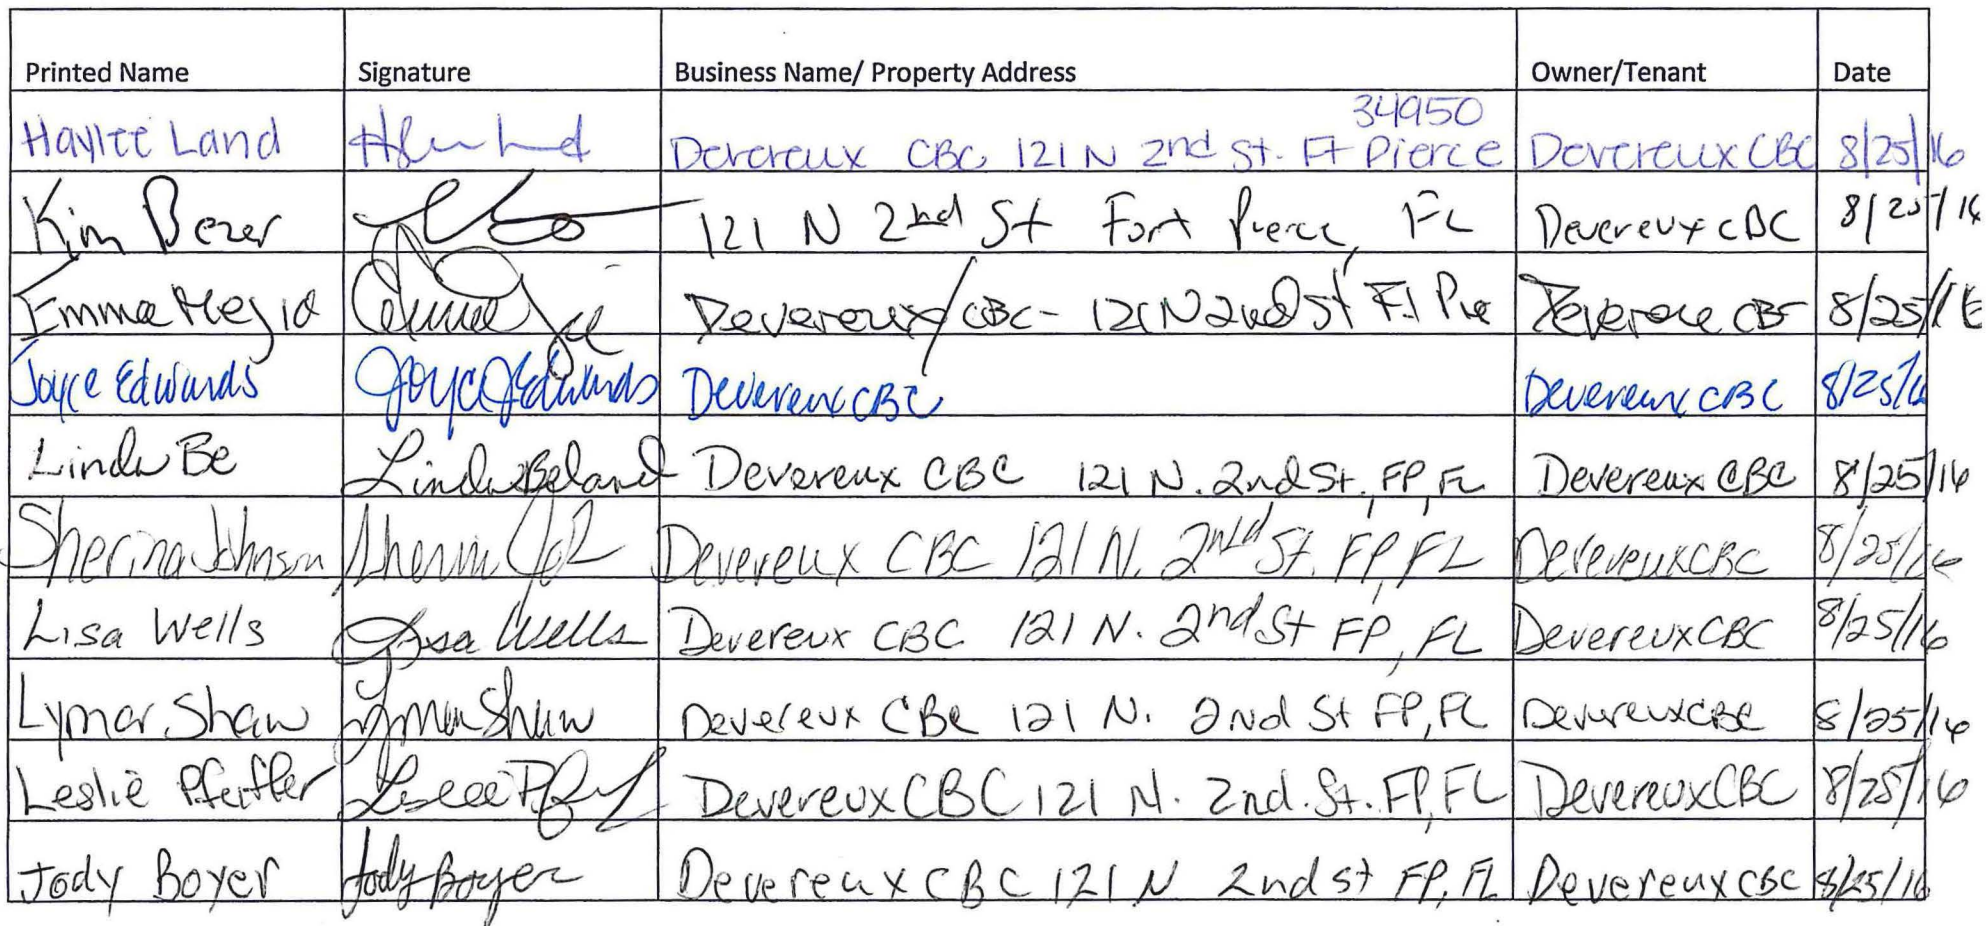 Printed Name Signature Business Name/ Property Address Owner/Tenant Date
34950
Haylee Land Devereux CBC 121 N 2nd St. Ft Pierce Devereux CBC 8/25/16
Kim Bezer 121 N 2nd St Fort Pierce, FL Devereux CBC 8/25/16
Emma Mejia Devereux/CBC- 121 N 2nd St Ft Pie 8/25/16
Joyce Edwards Joyce J Edwards Devereux CBC Devereux CBC 8/25/16
Linda Be Linda Beland Devereux CBC 121 N. 2nd St. FP, FL Devereux CBC 8/25/16
Sherina Johnson Devereux CBC 121 N. 2nd St. FP, FL Devereux CBC 8/25/16
Lisa Wells Lisa Wells Devereux CBC 121 N. 2nd St FP, FL Devereux CBC 8/25/16
Lymar Shaw Lymar Shaw Devereux CBC 121 N. 2nd St FP, FL Devereux CBC 8/25/16
Leslie Pfeiffer Devereux CBC 121 N. 2nd. St. FP, FL Devereux CBC 8/25/16
Jody Boyer Jody Boyer Devereux CBC 121 N 2nd st FP, FL Devereux CBC 8/25/16